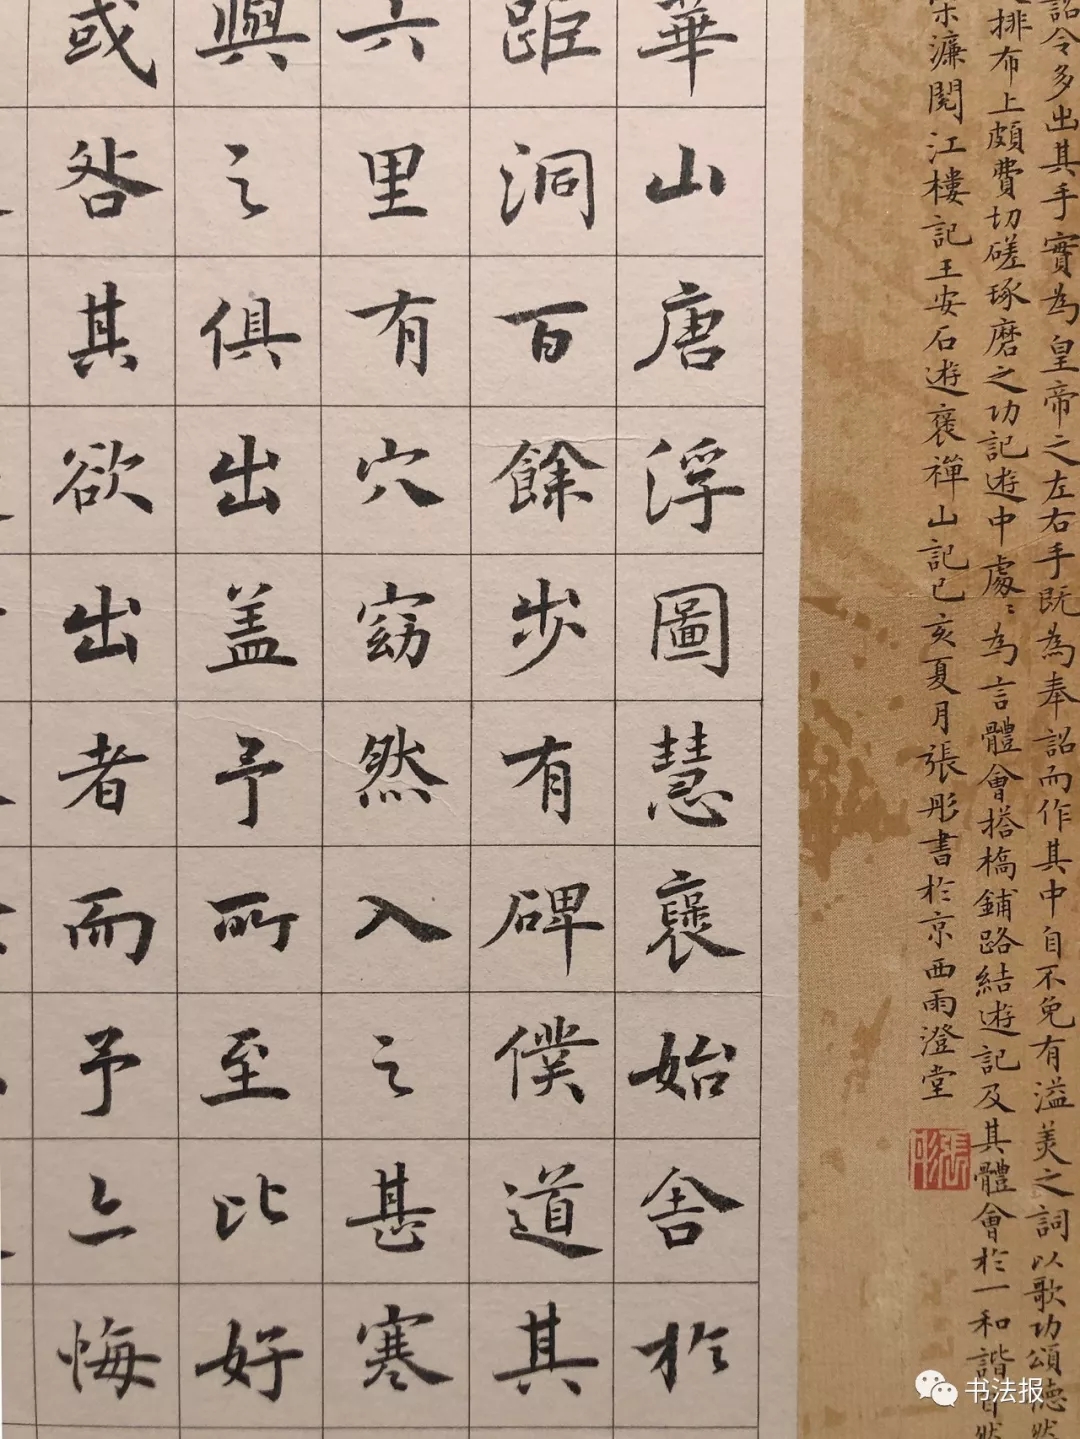 詔令多出其手實為皇帝之左右手既為奉詔而作其中自不免有溢美之詞以歌功頌德然
排布上頗費切磋琢磨之功記遊中處〻為言體會搭橋鋪路結遊記及其體會於一和諧自然
宋濂閱江樓記王安石遊褒禪山記己亥夏月張彤書於京西雨澄堂
張彤
華山唐浮圖慧褒始舍於
距洞百餘步有碑僕道其
六里有穴窈然入之甚寒
與之俱出盖予所至比好
或咎其欲出者而予亦悔
书法报